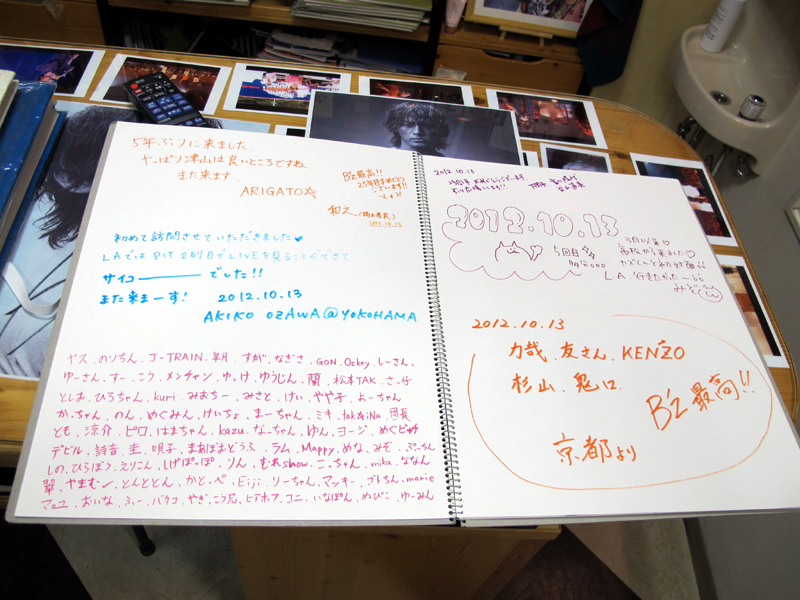 5年ぶりに来ました
やっぱり津山は良いところですね
また来ます
ARIGATO☆
B'z最高!!
25周年おめでとう
ございます!!
2012.10.13
初めて訪問させていただきました♥
LAではPIT 2列目でLIVEを見ることができて
サイコーーーーでした!!
また来まーす! 2012.10.13
AKIKO OZAWA@YOKOHAMA
ヤス.のりちん.J-TRAIN.皐月.すが.なぎさ.GON.Ockey.しーさん.
ゆーさん.すー.こう.メンチャン.ゆっけ.ゆうじん.蘭.松本TAK.
としお.ひろちゃん.kuri.みおちー.みさと.けい.やや子.よーちゃん
かっちゃん.のん.めぐみん.けいちょ.まーちゃん.ミキ.団長
とも.涼介.ピロ.はまちゃん.kazu.なっちゃん.ゆん.ヨージ.
デビル.詩音.圭.唄子.まあぼおどうふ.ラム.Mappy.めな.みぞ.
しの.ひろぽう.えりこん.しげぽっぽ.りん.むれshow.こっちゃん.mika.ななん
翠.やまもン.とんととん.かと.ぺ.Eiji.リーちゃん.マッキー.ゴトちん.marie
マユユ.おいな.ふー.バウコ.やぎ.こう兄.ヒデホフ.コニ.いなぽん.めぴこ.ゆーみん
2012.10.13
2012.10.13
5回目
高松から来ました♡
L.A.行きたかったー
みぞ
2012.10.13
力哉.友さん.KENZO
杉山.鬼口
B'z 最高!!
京都より